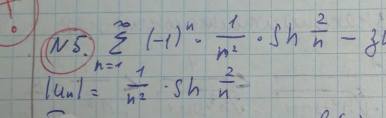 N5. ∞∑n=1 (-1)^n · 1/n² · sh 2/n - зн
|Un| = 1/n² · sh 2/n